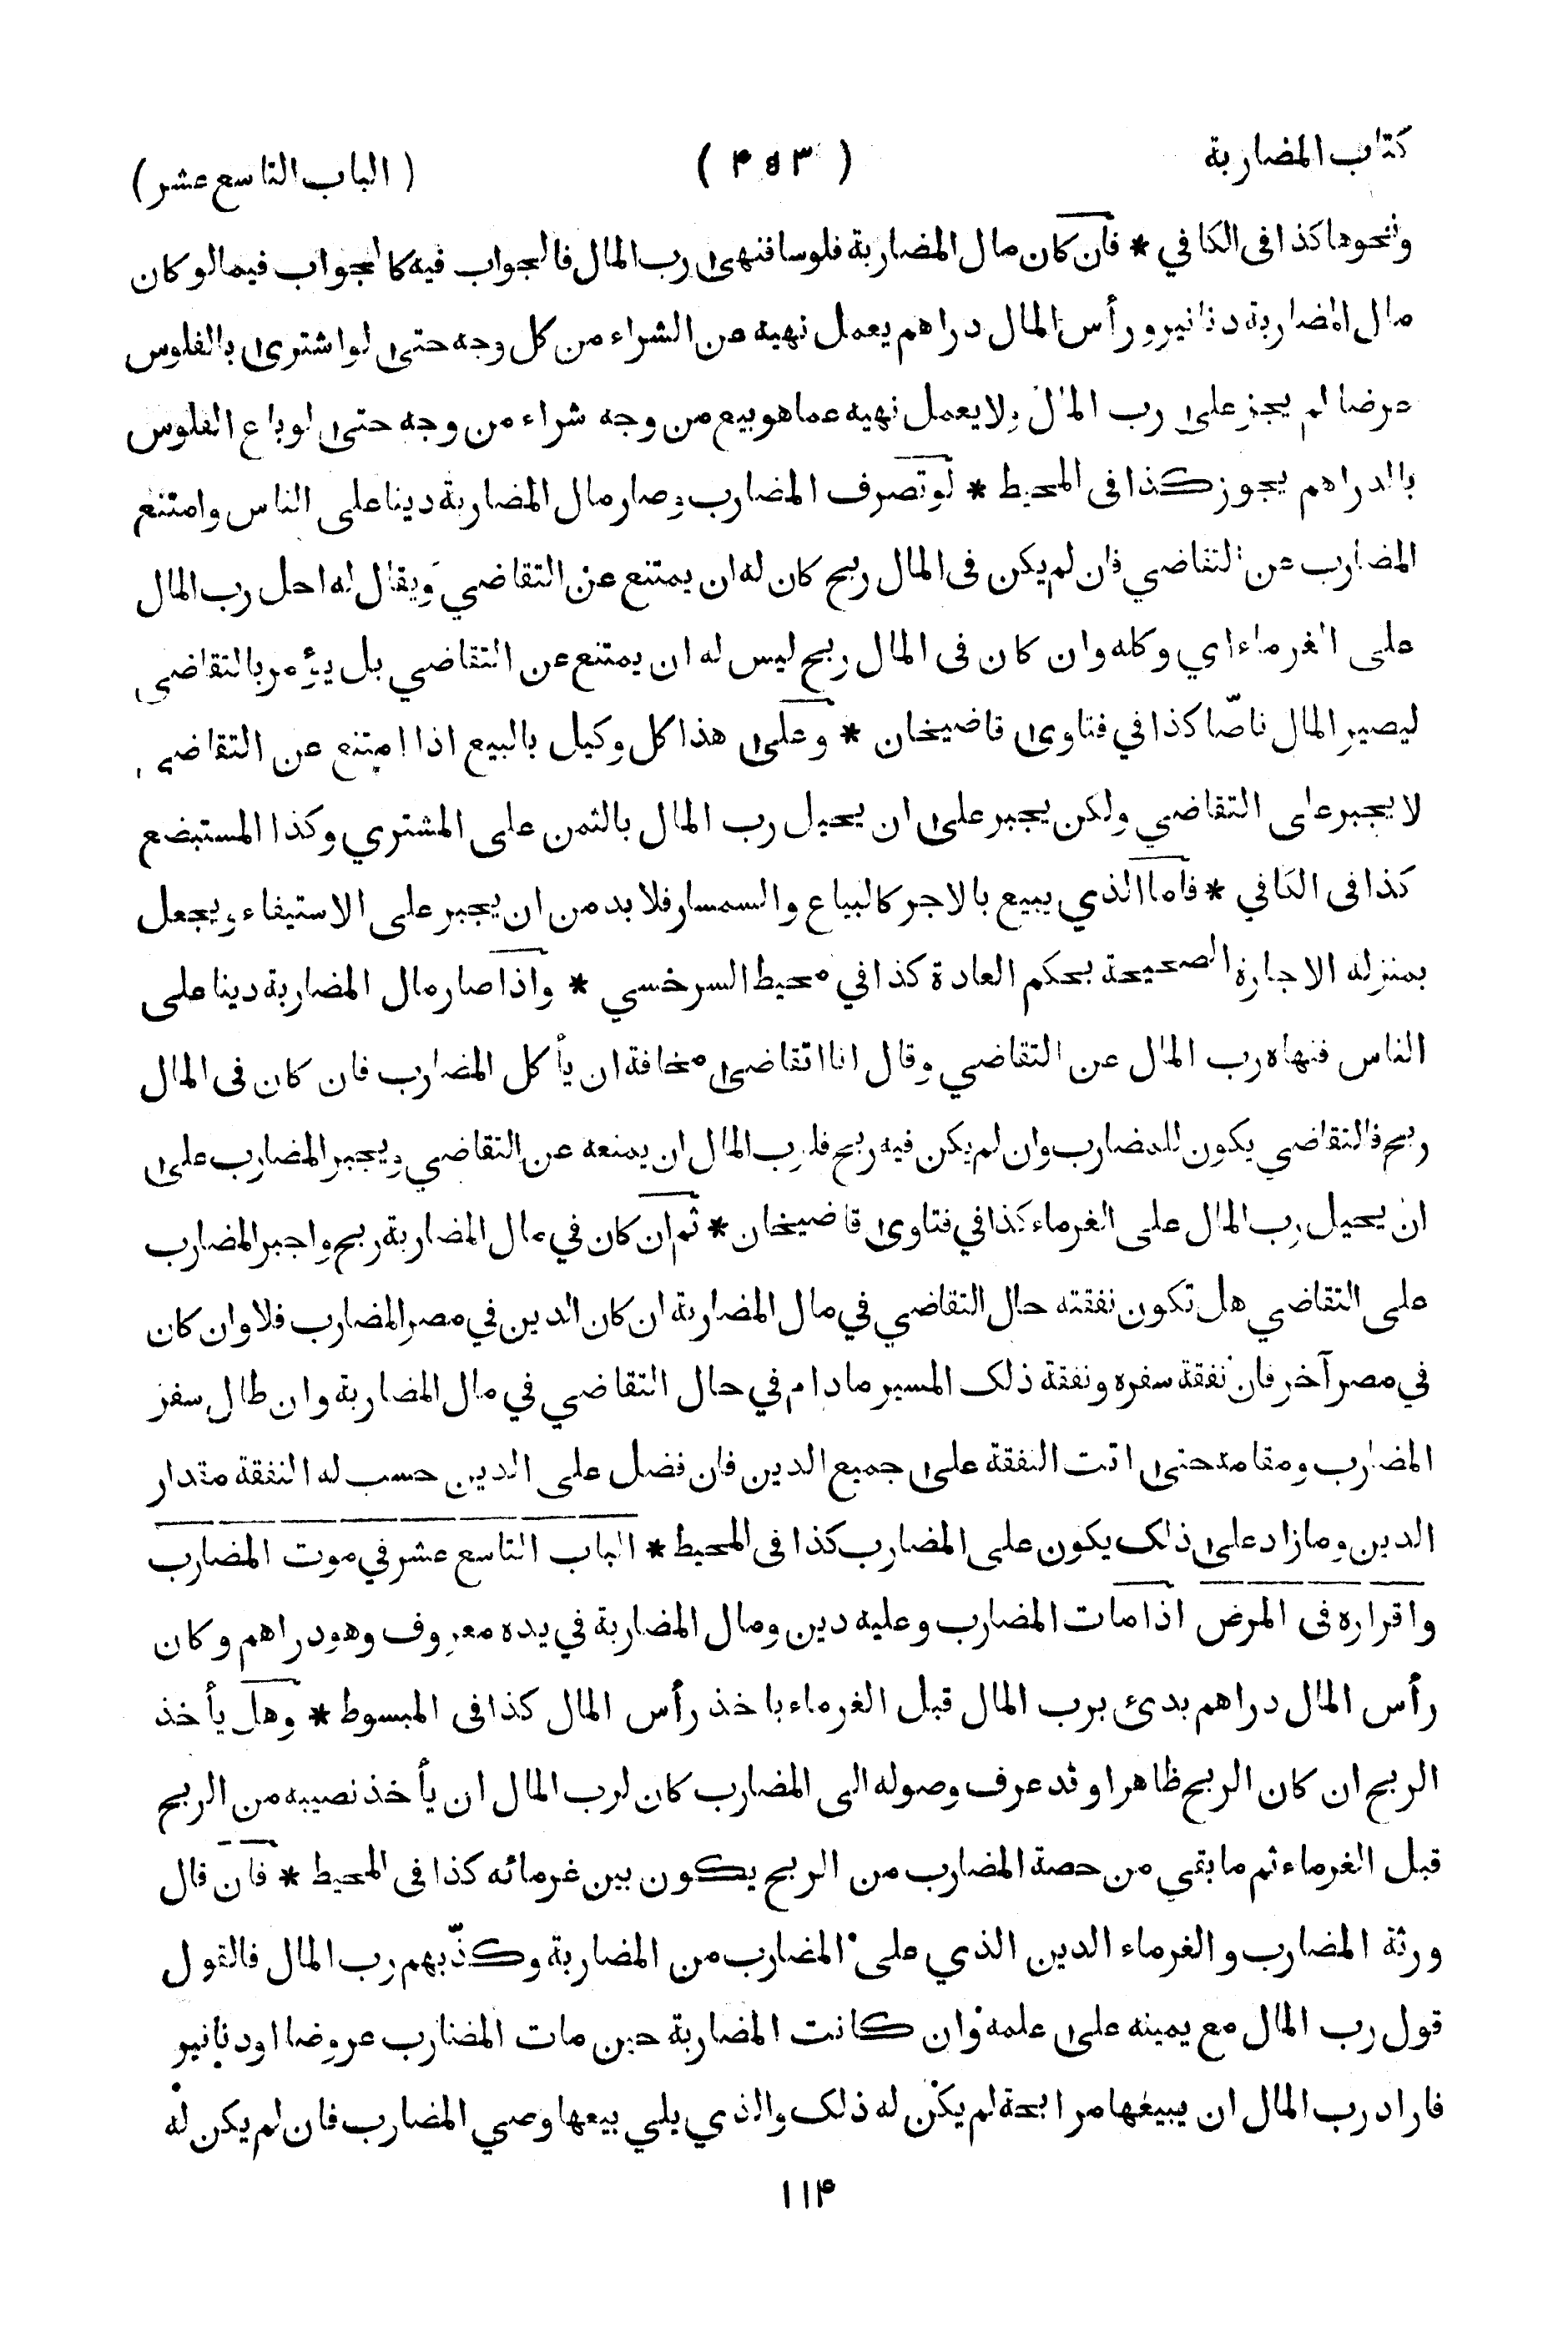 كتاب المضاربة
( ۴۵۳ )
( الباب التاسع عشر )
ونحوها كذا فى الكافي * فان كان مال المضاربة فلوسا فنهى رب المال فالجواب فيه كالجواب فيما لو كان
مال المضاربة دنانير و رأس المال دراهم يعمل نهيه عن الشراء من كل وجه حتى لو اشترى بالفلوس
عرضا لم يجز على رب المال ولا يعمل نهيه عما هو بيع من وجه شراء من وجه حتى لو باع الفلوس
بالدراهم يجوز كذا فى المحيط * لو تصرف المضارب وصار مال المضاربة دينا على الناس وامتنع
المضارب عن التقاضي فان لم يكن فى المال ربح كان له ان يمتنع عن التقاضي ويقال له احل رب المال
على الغرماء اي وكله وان كان فى المال ربح ليس له ان يمتنع عن التقاضي بل يؤمر بالتقاضي
ليصير المال ناصّا كذا في فتاوى قاضيخان * وعلى هذا كل وكيل بالبيع اذا امتنع عن التقاضي
لا يجبر على التقاضي ولكن يجبر على ان يحيل رب المال بالثمن على المشتري وكذا المستبضع
كذا فى الكافي * فاما الذي يبيع بالاجر كالبياع والسمسار فلا بد من ان يجبر على الاستيفاء ويجعل
بمنزله الاجارة الصحيحة بحكم العادة كذا في محيط السرخسي * واذا صار مال المضاربة دينا على
الناس فنهاه رب المال عن التقاضي وقال انا اتقاضى مخافة ان يأكل المضارب فان كان فى المال
ربح فالتقاضي يكون للمضارب وان لم يكن فيه ربح فلرب المال ان يمنعه عن التقاضي ويجبر المضارب على
ان يحيل رب المال على الغرماء كذا في فتاوى قاضيخان * ثم ان كان في مال المضاربة ربح واجبر المضارب
على التقاضي هل تكون نفقته حال التقاضي في مال المضاربة ان كان الدين في مصر المضارب فلا وان كان
في مصر آخر فان نفقة سفره ونفقة ذلك المسير مادام في حال التقاضي في مال المضاربة وان طال سفر
المضارب ومقامته حتى اتت النفقة على جميع الدين فان فضل على الدين حسب له النفقة مقدار
الدين وما زاد على ذلك يكون على المضارب كذا فى المحيط * الباب التاسع عشر في موت المضارب
واقراره فى المرض اذا مات المضارب وعليه دين ومال المضاربة في يده معروف وهو دراهم وكان
رأس المال دراهم بدئ برب المال قبل الغرماء باخذ رأس المال كذا فى المبسوط * وهل يأخذ
الربح ان كان الربح ظاهرا وقد عرف وصوله الى المضارب كان لرب المال ان يأخذ نصيبه من الربح
قبل الغرماء ثم ما بقي من حصة المضارب من الربح يكون بين غرمائه كذا فى المحيط * فان قال
ورثة المضارب والغرماء الدين الذي على المضارب من المضاربة وكذّبهم رب المال فالقول
قول رب المال مع يمينه على علمه وان كانت المضاربة حين مات المضارب عروضا او دنانير
فاراد رب المال ان يبيعها مرابحة لم يكن له ذلك والذي يلي بيعها وصي المضارب فان لم يكن له
۱۱۴